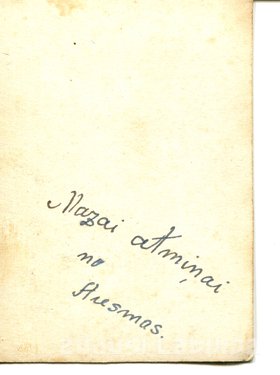 Mazai atmiņai
no
Husmas.